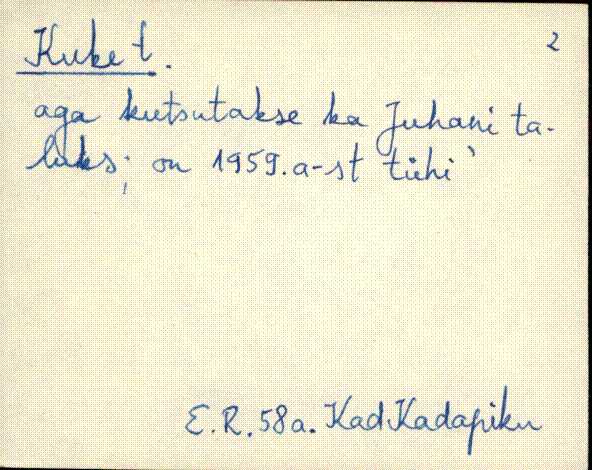 2
Kuke t.
aga kutsutakse ka Juhani ta-
luks; on 1959.a-st tühi
E.R. 58a. Kad Kadapiku